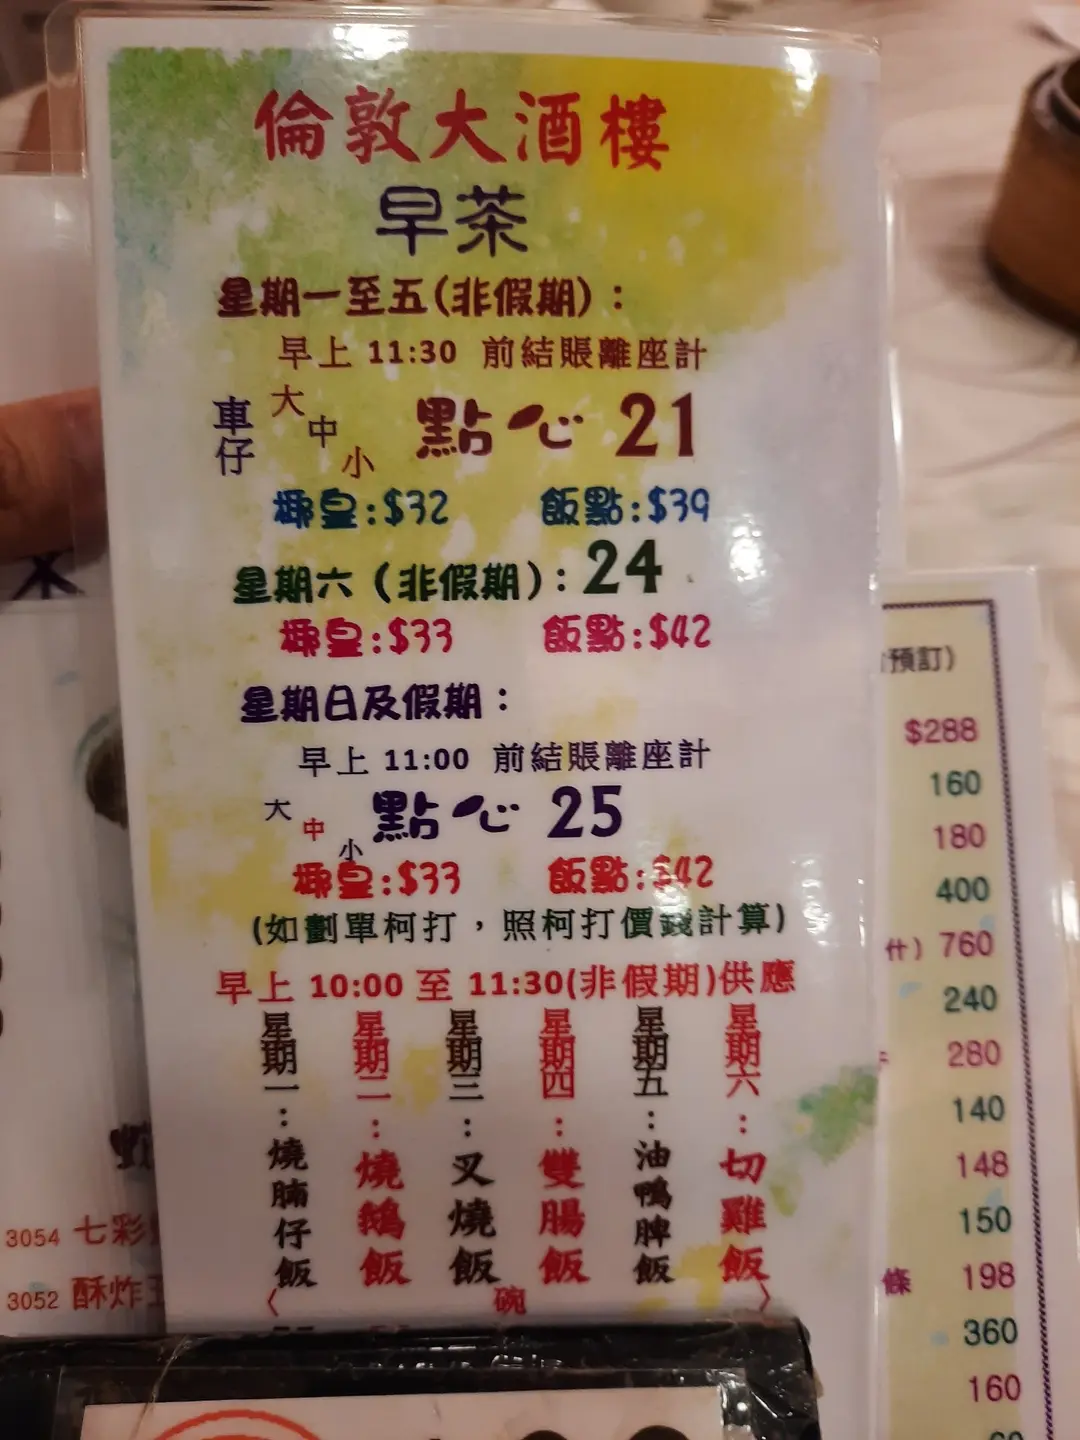 倫敦大酒樓
早茶
星期一至五(非假期)：
早上 11:30 前結賬離座計
車仔 大中小 點心 21
椰皇:$32 飯點:$39
星期六（非假期）: 24
椰皇:$33 飯點:$42
星期日及假期：
早上 11:00 前結賬離座計
大中小 點心 25
椰皇:$33 飯點:$42
(如劃單柯打，照柯打價錢計算)
早上 10:00 至 11:30(非假期)供應
星期一：燒腩仔飯
星期二：燒鵝飯
星期三：叉燒飯
星期四：雙腸飯
星期五：油鴨脾飯
星期六：切雞飯
碗
3054 七彩
3052 酥炸
預訂）
$288
160
180
400
什）760
240
280
140
148
150
條 198
360
160